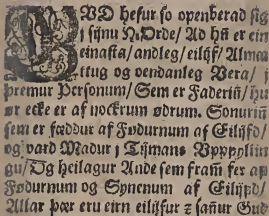 GVD hefur so openberad sig
j sijnu H. Orde/ Ad hañ er ein
einasta/andleg/eilijf/Alma-
ttug og oendanleg Vera/ j
þremur Personum/Sem er Faderiñ/ hu
ør ecke er af nockrum ødrum. Sonuriñ
sem er fæddur af Fødurnum af Eilijfd/
og vard Madur j Tijmans Vppfyllin
gu/Og heilagur Ande sem fram fer af
Fødurnum og Syninum af Eilijfd/
Allar þær eru eirn eilijfur z sañur Gud